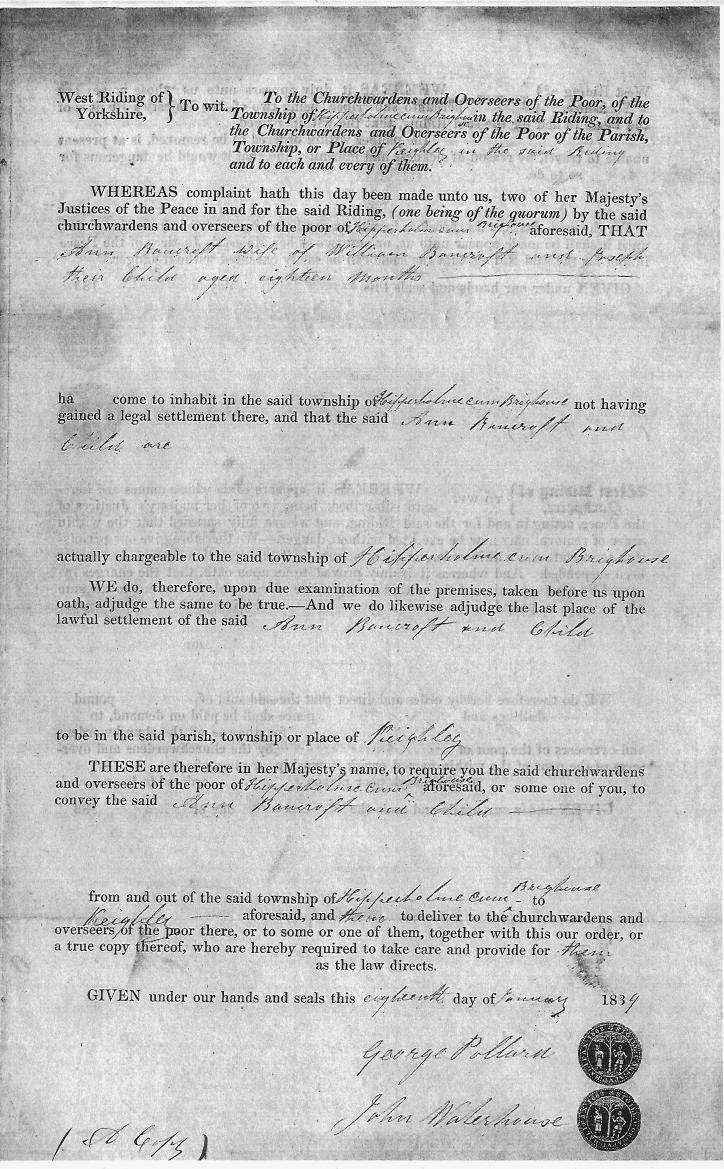 West Riding of Yorkshire, } To wit.
To the Churchwardens and Overseers of the Poor, of the
Township of Hipperholme cum Brighouse in the said Riding, and to
the Churchwardens and Overseers of the Poor of the Parish,
Township, or Place of Keighley in the said Riding
and to each and every of them.
WHEREAS complaint hath this day been made unto us, two of her Majesty's
Justices of the Peace in and for the said Riding, (one being of the quorum) by the said
churchwardens and overseers of the poor of Hipperholme cum Brighouse aforesaid, THAT
Ann Bancroft wife of William Bancroft and Joseph
their Child aged eighteen months
ha come to inhabit in the said township of Hipperholme cum Brighouse not having
gained a legal settlement there, and that the said Ann Bancroft and
Child are
actually chargeable to the said township of Hipperholme cum Brighouse
WE do, therefore, upon due examination of the premises, taken before us upon
oath, adjudge the same to be true.—And we do likewise adjudge the last place of the
lawful settlement of the said Ann Bancroft and Child
to be in the said parish, township or place of Keighley
THESE are therefore in her Majesty's name, to require you the said churchwardens
and overseers of the poor of Hipperholme cum Brighouse aforesaid, or some one of you, to
convey the said Ann Bancroft and Child
from and out of the said township of Hipperholme cum Brighouse to
Keighley aforesaid, and them to deliver to the churchwardens and
overseers of the poor there, or to some or one of them, together with this our order, or
a true copy thereof, who are hereby required to take care and provide for them
as the law directs.
GIVEN under our hands and seals this eighteenth day of January 1839
George Pollard
John Waterhouse
(A Copy)